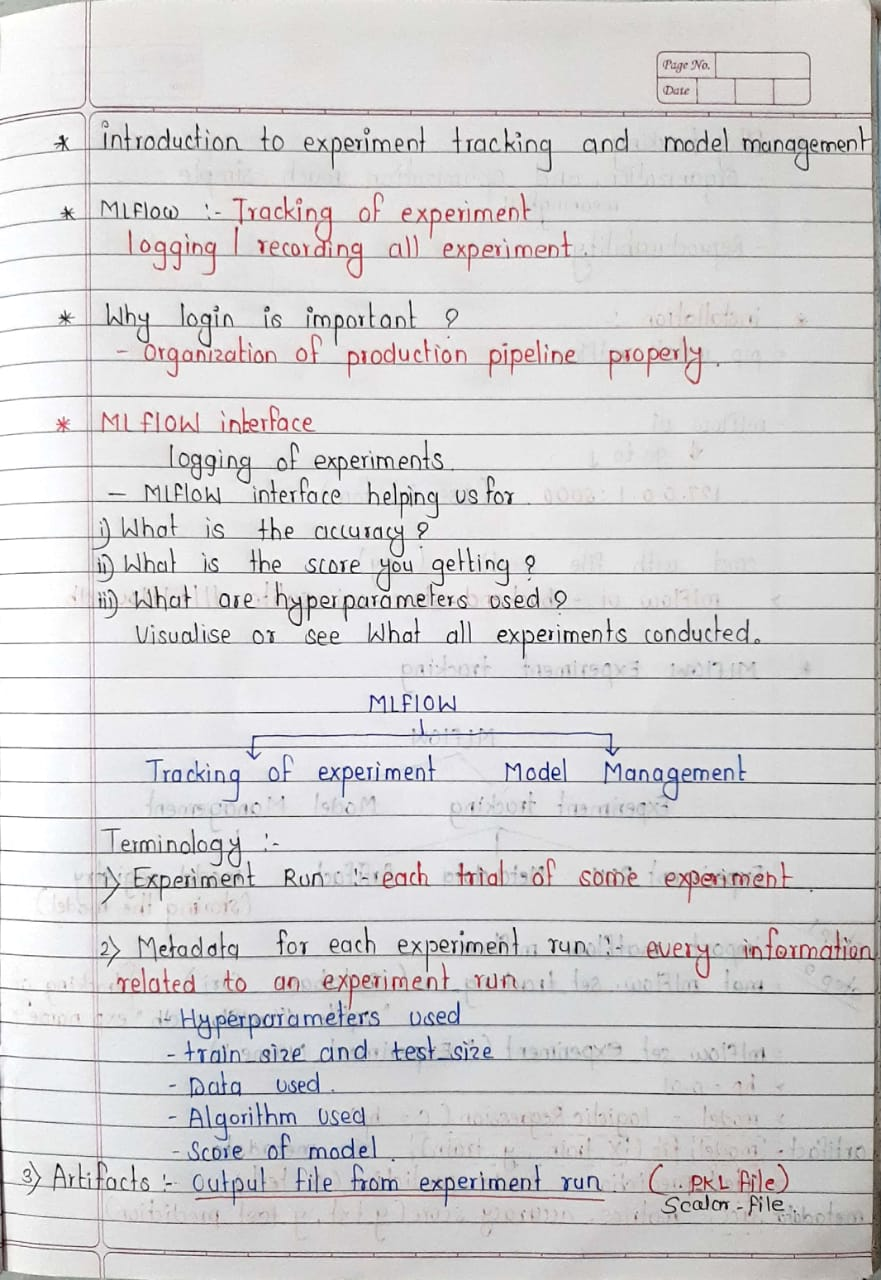 Page No.
Date
* introduction to experiment tracking and model management
* MLFlow :- Tracking of experiment
logging | recording all experiment.
* Why login is important ?
- Organization of production pipeline properly.
* MLFlow interface
logging of experiments.
- MLFlow interface helping us for
i) What is the accuracy ?
ii) What is the score you getting ?
iii) What are hyperparameters used ?
Visualise or see What all experiments conducted.
MLFlow
Tracking of experiment Model Management
Terminology :-
1) Experiment Run :- each trial of some experiment.
2) Metadata for each experiment run :- every information
related to an experiment run
- Hyperparameters used
- train size and test size
- Data used.
- Algorithm used
- Score of model.
3) Artifacts :- Output file from experiment run (.PKL file)
Scalar-file.